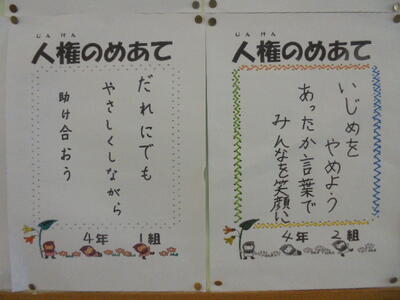 じんけん
人権のめあて
だれにでも
やさしくしながら
助け合おう
4年 1組
じんけん
人権のめあて
いじめを やめよう
あったか言葉で
みんなを笑顔に
4年 2組